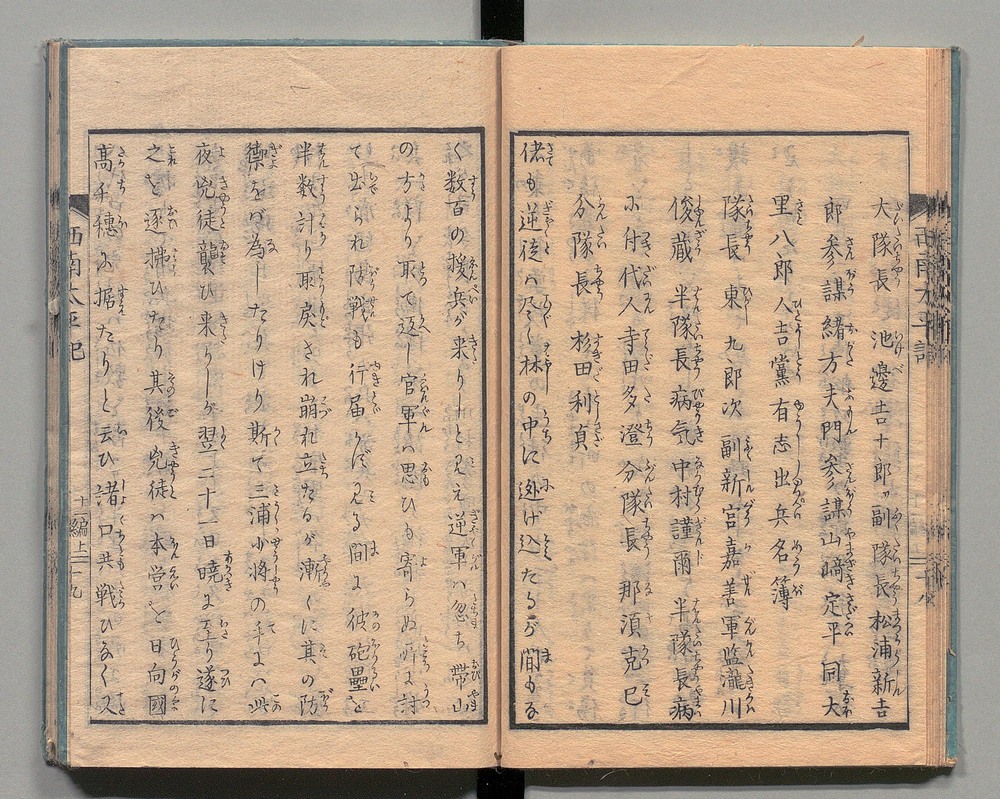 大隊長 池邊吉十郎 副隊長松浦新吉
郎 参謀緒方夫門 参謀山﨑定平 同大
里八郎 人吉黨有志出兵名簿
隊長 東九郎次 副新宮嘉善 軍監瀧川
俊藏 半隊長病気 中村謹爾 半隊長病
小付代人寺田多澄 分隊長 那須克巳
分隊長 杉田利貞
偖も逆徒ハ尽く林の中に迯げ込たるが間もな
く数百の援兵が来りしと見え逆軍ハ忽ち帶山
の方より取て返し官軍ハ思ひも寄らぬ所に討
て出られ防戦も行届かず見る間に彼砲壘を
半数計り取戻され崩れ立たるが漸くに其の防
禦をバ為したりけり斯て三浦少将の手にハ此
夜兇徒襲ひ来りしが翌二十一日暁に至り遂に
之を逐拂ひたり其後兇徒ハ本営を日向國
高千穂に据たりと云ひ諸口共戦ひなく又
西南太平記
西南太平記
十一編上
十九